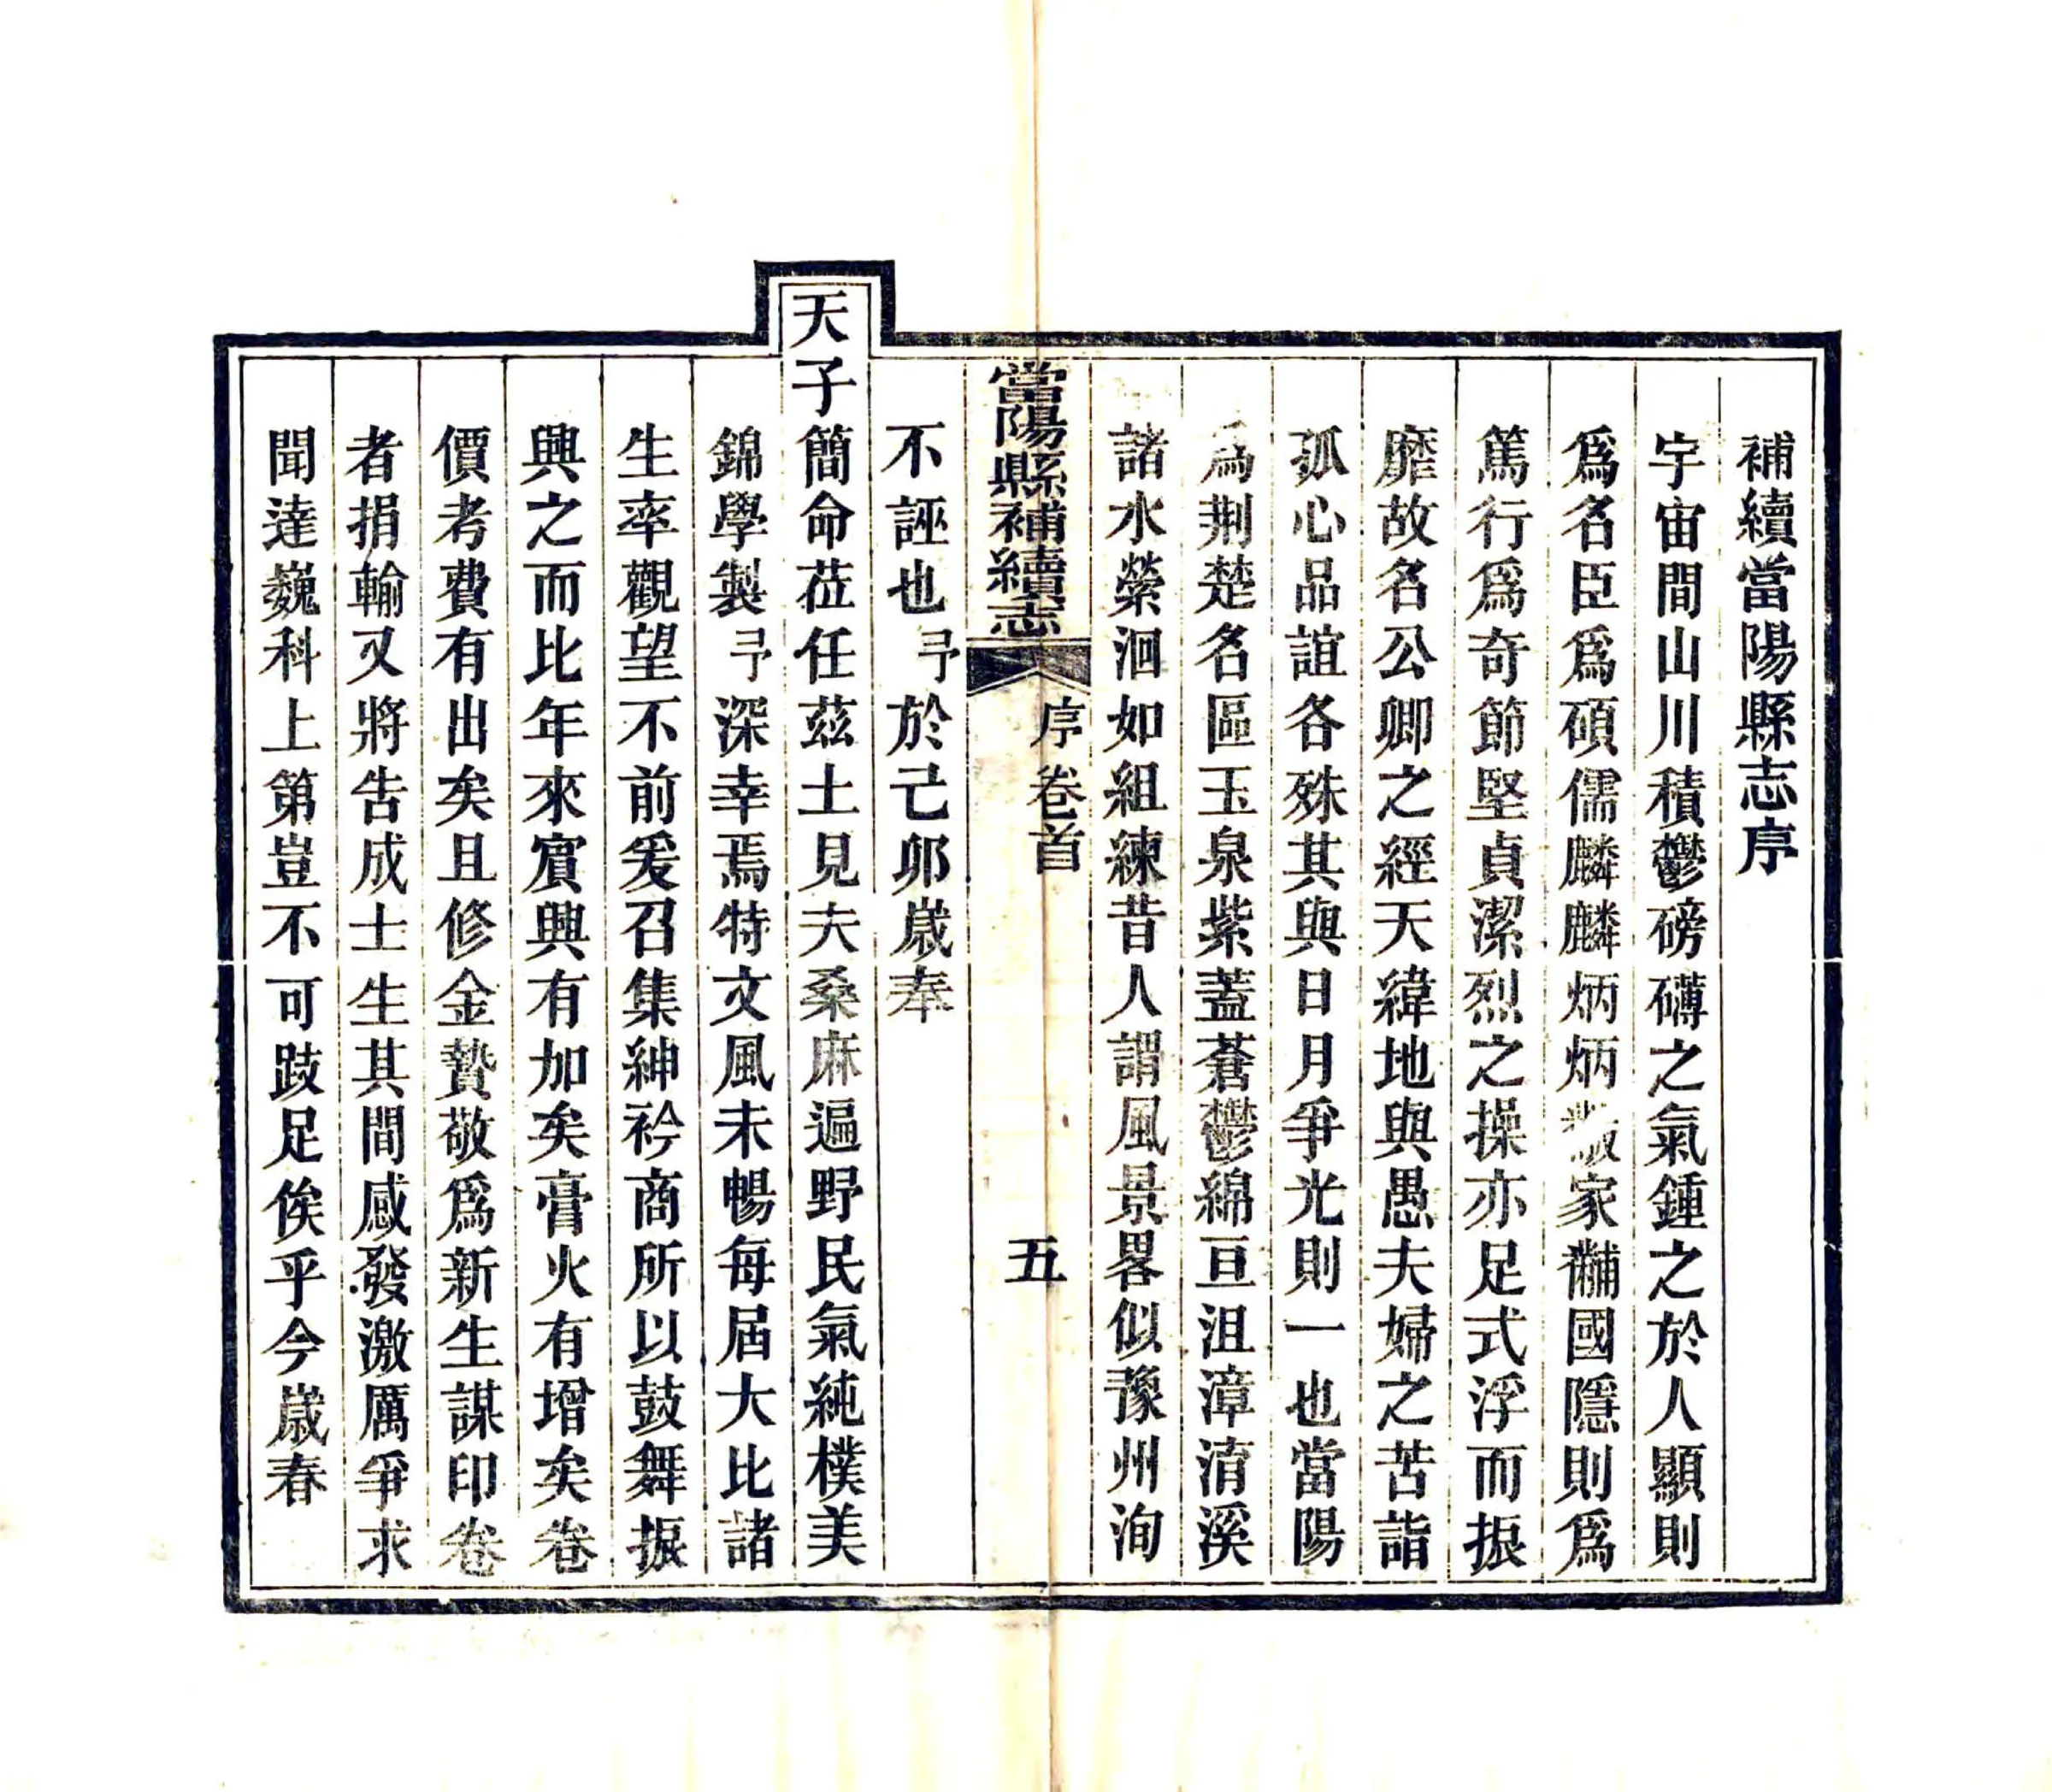 補續當陽縣志序
宇宙間山川積鬱磅礴之氣鍾之於人顯則
爲名臣爲碩儒麟麟炳炳黻家黼國隱則爲
篤行爲奇節堅貞潔烈之操亦足式浮而振
靡故名公卿之經天緯地與愚夫婦之苦詣
孤心品誼各殊其與日月爭光則一也當陽
爲荆楚名區玉泉紫蓋蒼鬱綿亘沮漳淯溪
諸水縈洄如組練昔人謂風景畧似豫州洵
當陽縣補續志 序 卷首 五
不誣也予於己卯歲奉
天子簡命莅任茲土見夫桑麻遍野民氣純樸美
錦學製予深幸焉特文風未暢每屆大比諸
生率觀望不前爰召集紳衿商所以鼓舞振
興之而比年來賓興有加矣膏火有增矣卷
價考費有出矣且修金贄敬爲新生謀印卷
者捐輸又將告成士生其間感發激厲爭求
聞達巍科上第豈不可跂足俟乎今歲春